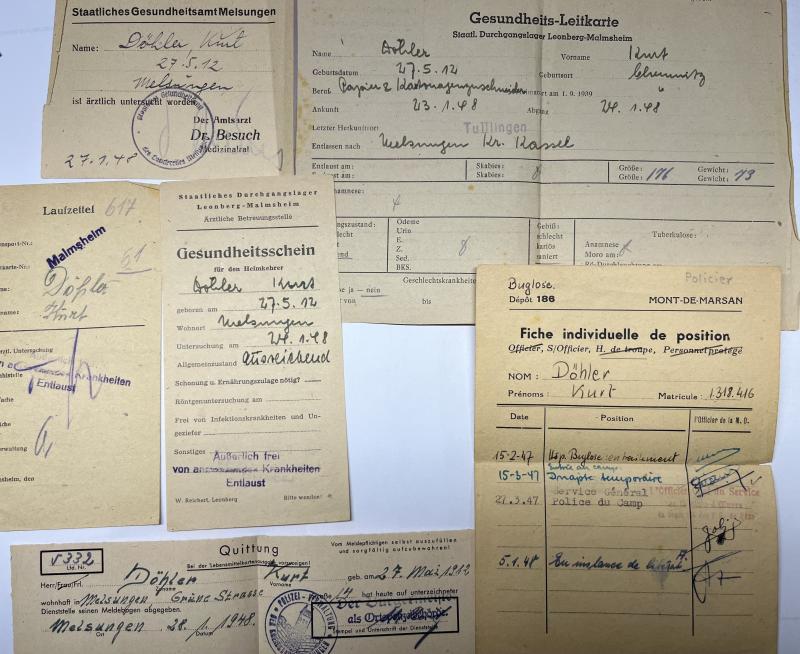 Staatliches Gesundheitsamt Melsungen
Name: Döhler, Kurt
27.5.12
Melsungen
ist ärztlich untersucht worden
Der Amtsarzt
Dr. Besuch
Medizinalrat
27.1.48
Gesundheits-Leitkarte
Staatl. Durchgangslager Leonberg-Malmsheim
Name Döhler Vorname Kurt
Geburtsdatum 27.5.12 Geburtsort Chemnitz
Beruf Papier & am 1. 9. 1939 "
Ankunft 23.1.48 Abgang 24.1.48
Letzter Herkunftsort Tuttlingen
Entlassen nach Melsungen Kr. Kassel
Entlaust am Skabies: Größe: 176 Gewicht: 73
Entlaust am Skabies: Größe: Gewicht:
amnese:
ngszustand: Ödeme Tuberkulose:
Urin Anamnese
E. Moro am:
Z.
Sed.
BKS.
Geschlechtskrankheite
ja — nein
von bis
Laufzettel 617
Malmsheim
nsport-Nr.:
karte-Nr.: 61
Döhler
Kurt
Untersuchung
Krankheiten
Entlaust
Staatliches Durchgangslager
Leonberg-Malmsheim
Ärztliche Betreuungsstelle
Gesundheitsschein
für den Heimkehrer
Döhler Kurt
geboren am 27.5.12
Wohnort Melsungen
Untersuchung am 24.1.48
Allgemeinzustand Ausreichend
Schonung u. Ernährungszulage nötig?
Röntgenuntersuchung am
Frei von Infektionskrankheiten und Un-
geziefer
Sonstiges
Äußerlich frei
von ansteckenden Krankheiten
Entlaust
W. Reichert, Leonberg Bitte wenden!
Buglose. Policier
Dépôt 186 MONT-DE-MARSAN
Fiche individuelle de position
Officier, S/Officier, H. de troupe, Personnel protégé
NOM: Döhler
Prénoms: Kurt Matricule: 1.318.416
Date Position l'Officier de la M. O.
15-2-47 Hôp. Buglose: entraitement
Entrée au camp.
15-3-47 Inapte temporaire
Service Général
27.3.47 Police du Camp
5.1.48 En instance de
Vom Meldepflichtigen selbst auszufüllen
und sorgfältig aufzubewahren!
√332
Lfd. Nr.
Quittung
Bei der Lebensmittelkartenausgabe vorzuzeigen!
Herr/Frau/Frl. Döhler Kurt geb. am 27. Mai 1912
Name Vorname
wohnhaft in Melsungen Grüne Strasse 14 hat heute auf unterzeichneter
Dienststelle seinen Meldebogen abgegeben.
Der Bürgermeister
als Ortspolizeibehörde
Melsungen 28. 1. 1948.
Ort Datum Stempel und Unterschrift der Dienststelle